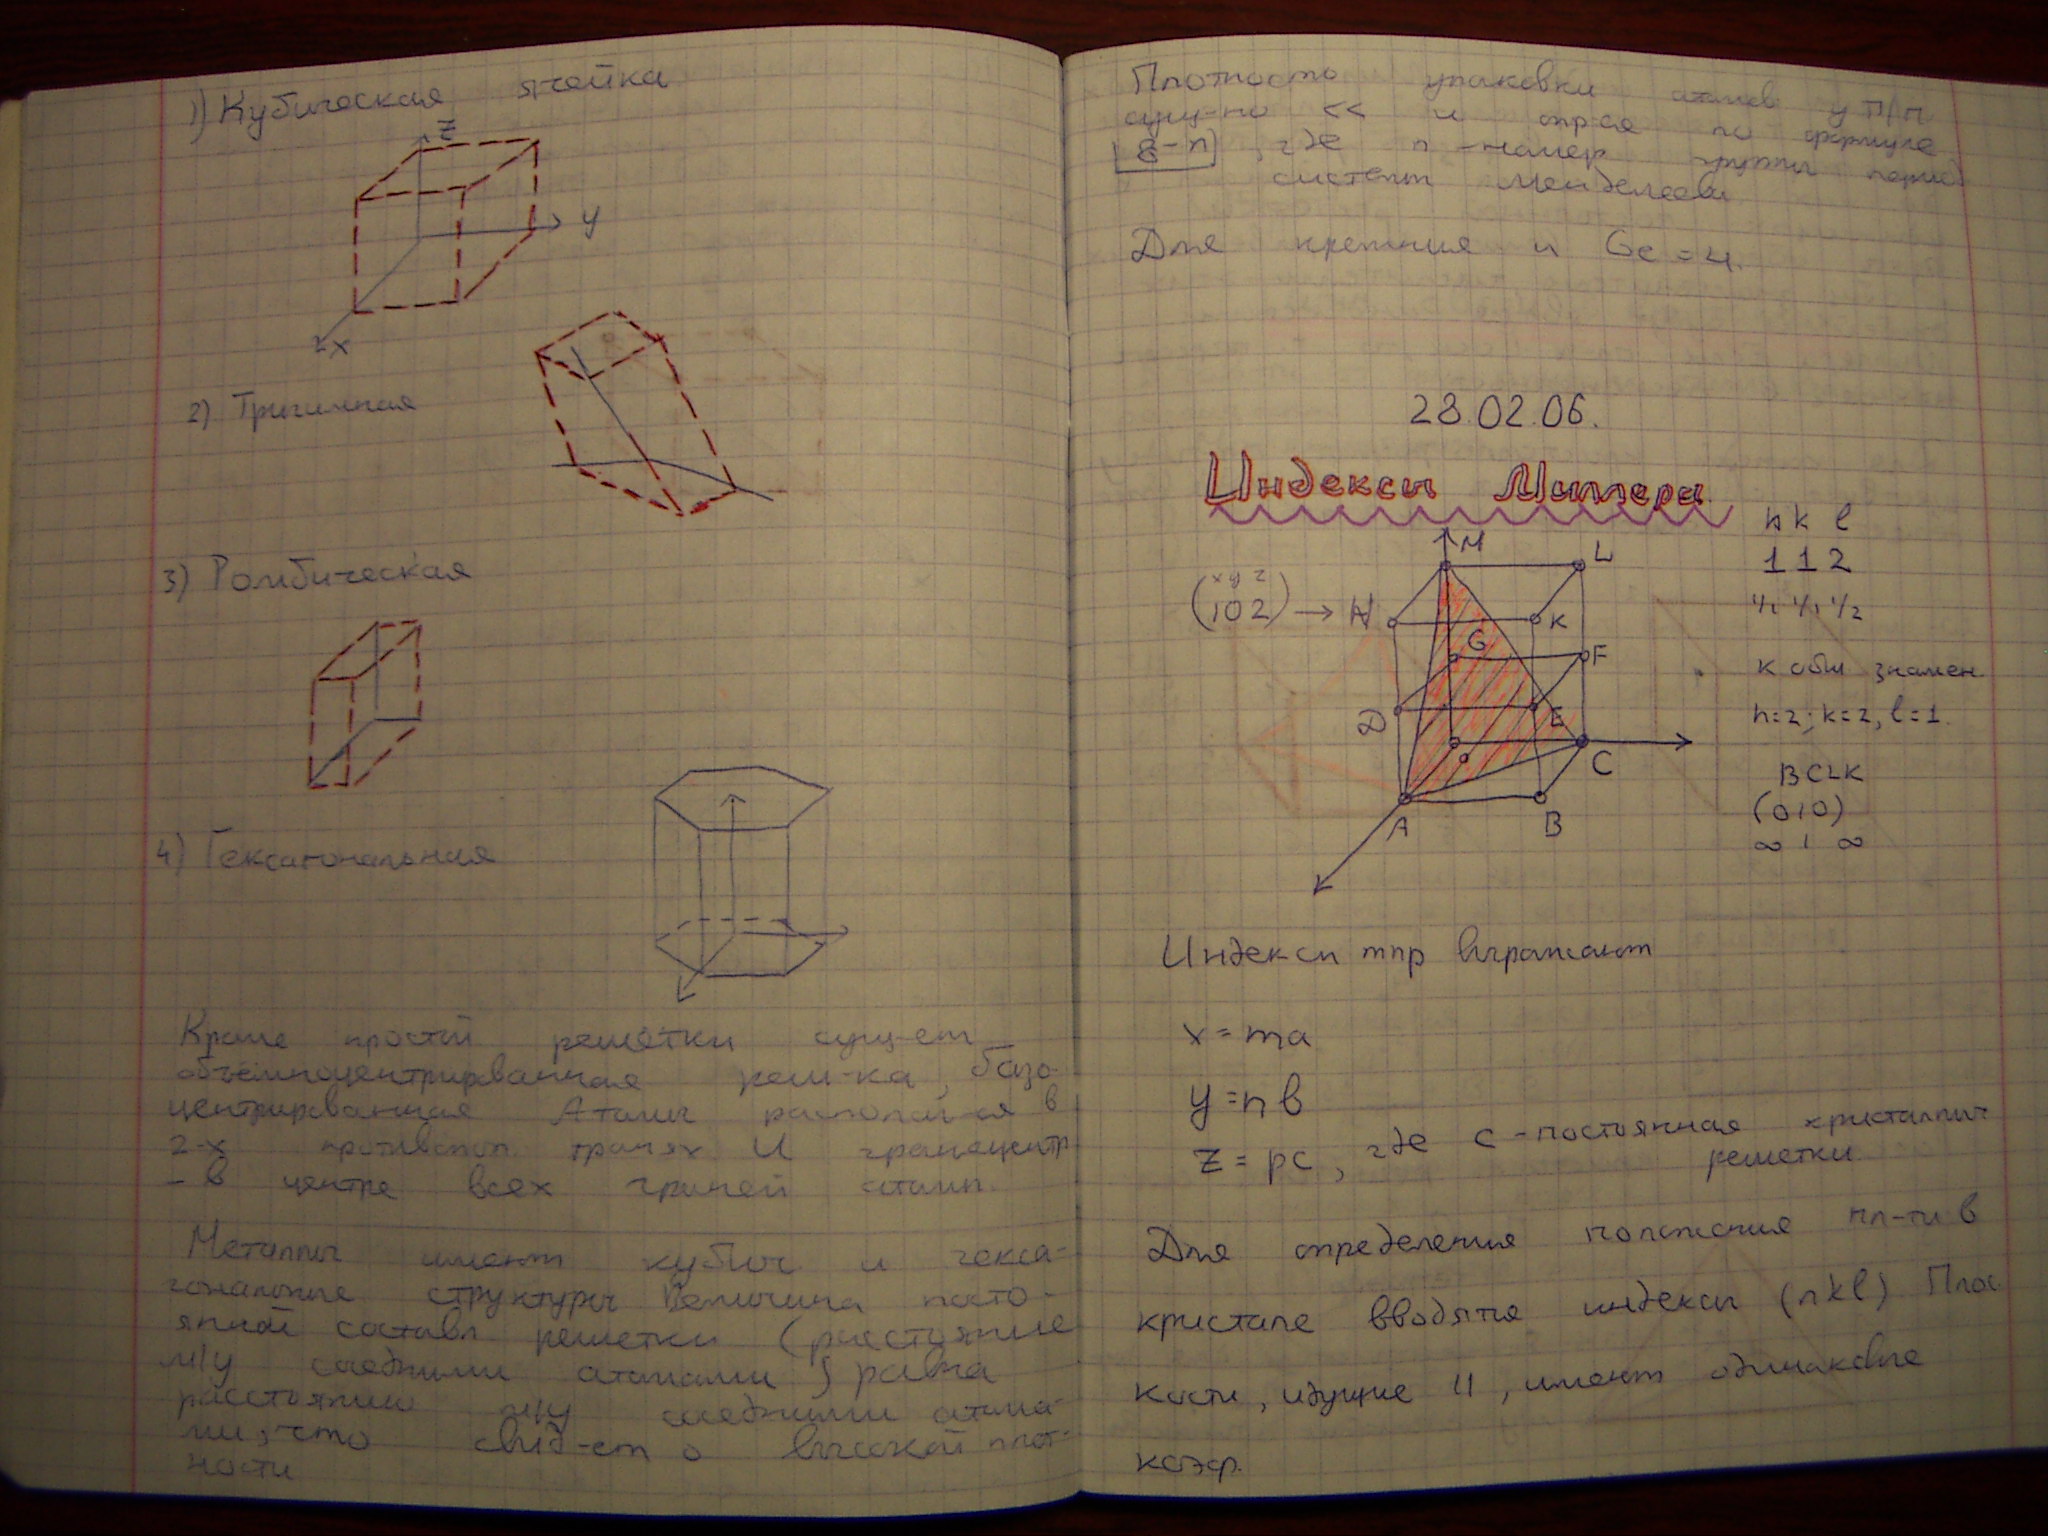 1) Кубическая ячейка
z
y
x
2) Тригимная
3) Ромбическая
4) Гексагональная
Кроме простой решётки сущ-ет
объёмноцентрированная реш-ка, базо-
центрированная Атомы располаг-ся в
2-х противопол гранях И гранецентр
- в центре всех граней атомы.
Металлы имеют кубич и гекса-
гональные структуры Величина посто-
янной составл решетки (расстояние
м/у соседними атомами) равна
расстоянию м/у соседними атома-
ми, что свид-ет о высокой плот-
ности
Плотность упаковки атомов у П/П
сущ-но << и опр-ся по формуле
8-n, где n - номер группы период
систем Менделеева
Для кремния и Ge = 4.
28.02.06.
Индексы Миллера
h k l
1 1 2
1/1 1/1 1/2
к общ знамен.
h=2; k=2, l=1.
BCLK
(010)
∞ 1 ∞
x y z
(102) → H
M
L
K
G
F
D
E
O
C
A
B
Индексы mnp выражают
x = ma
y = nв
z = pc, где c - постоянная кристаллич
решетки
Для определения положения пл-ти в
кристале вводятся индексы (hkl) Плос
кости, идущие ||, имеют одинаковые
коэф.